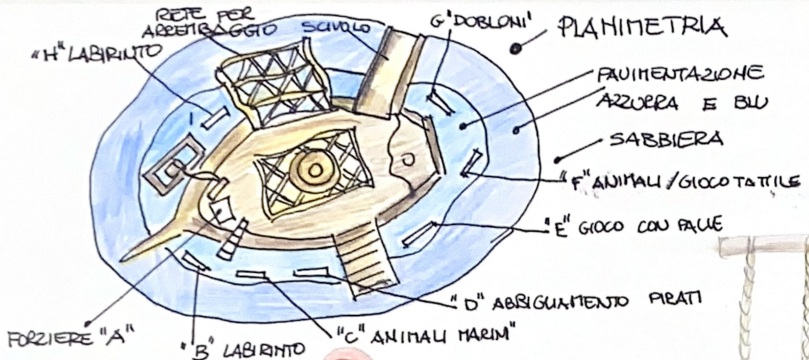 RETE PER
ARREMBAGGIO
SCIVOLO
G "DOBLONI"
PLANIMETRIA
"H" LABIRINTO
PAVIMENTAZIONE
AZZURRA E BLU
SABBIERA
"F" ANIMALI/GIOCO TATTILE
"E" GIOCO CON PALLE
"D" ABBIGLIAMENTO PIRATI
"C" ANIMALI MARINI"
"B" LABIRINTO
FORZIERE "A"